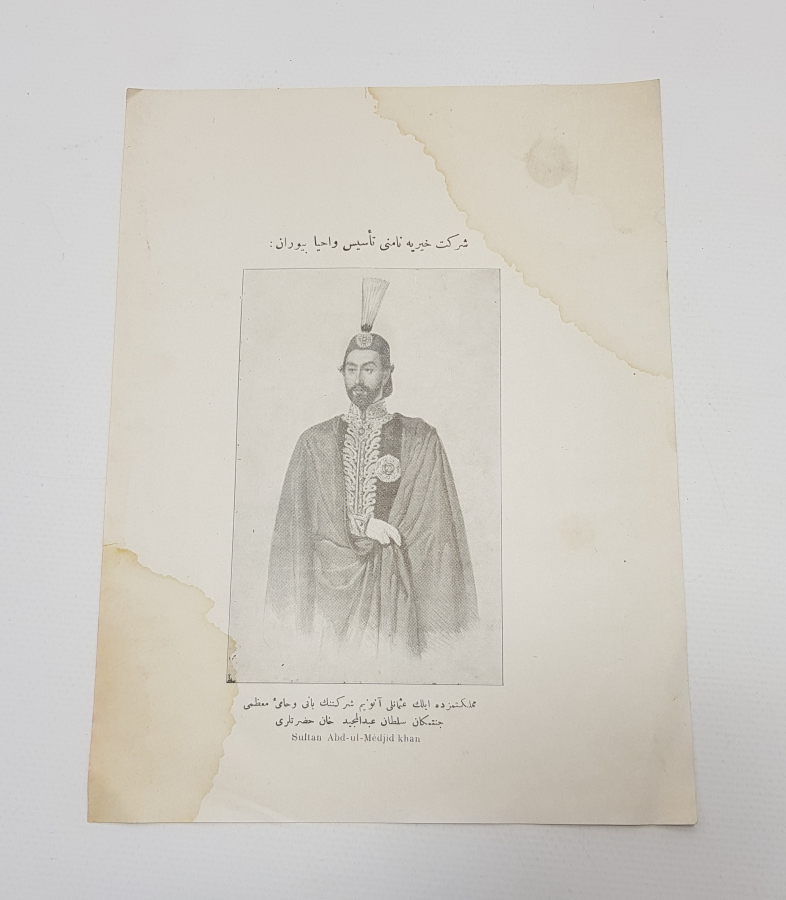 شركت خيريه نامنى تأسيس واحيا بيوران :
مملكتمزده ايلك عثمانلى آنونيم شركتنك بانى وحامئ معظمى
جنتمكان سلطان عبدالمجيد خان حضرتلرى
Sultan Abd-ul-Médjid khan